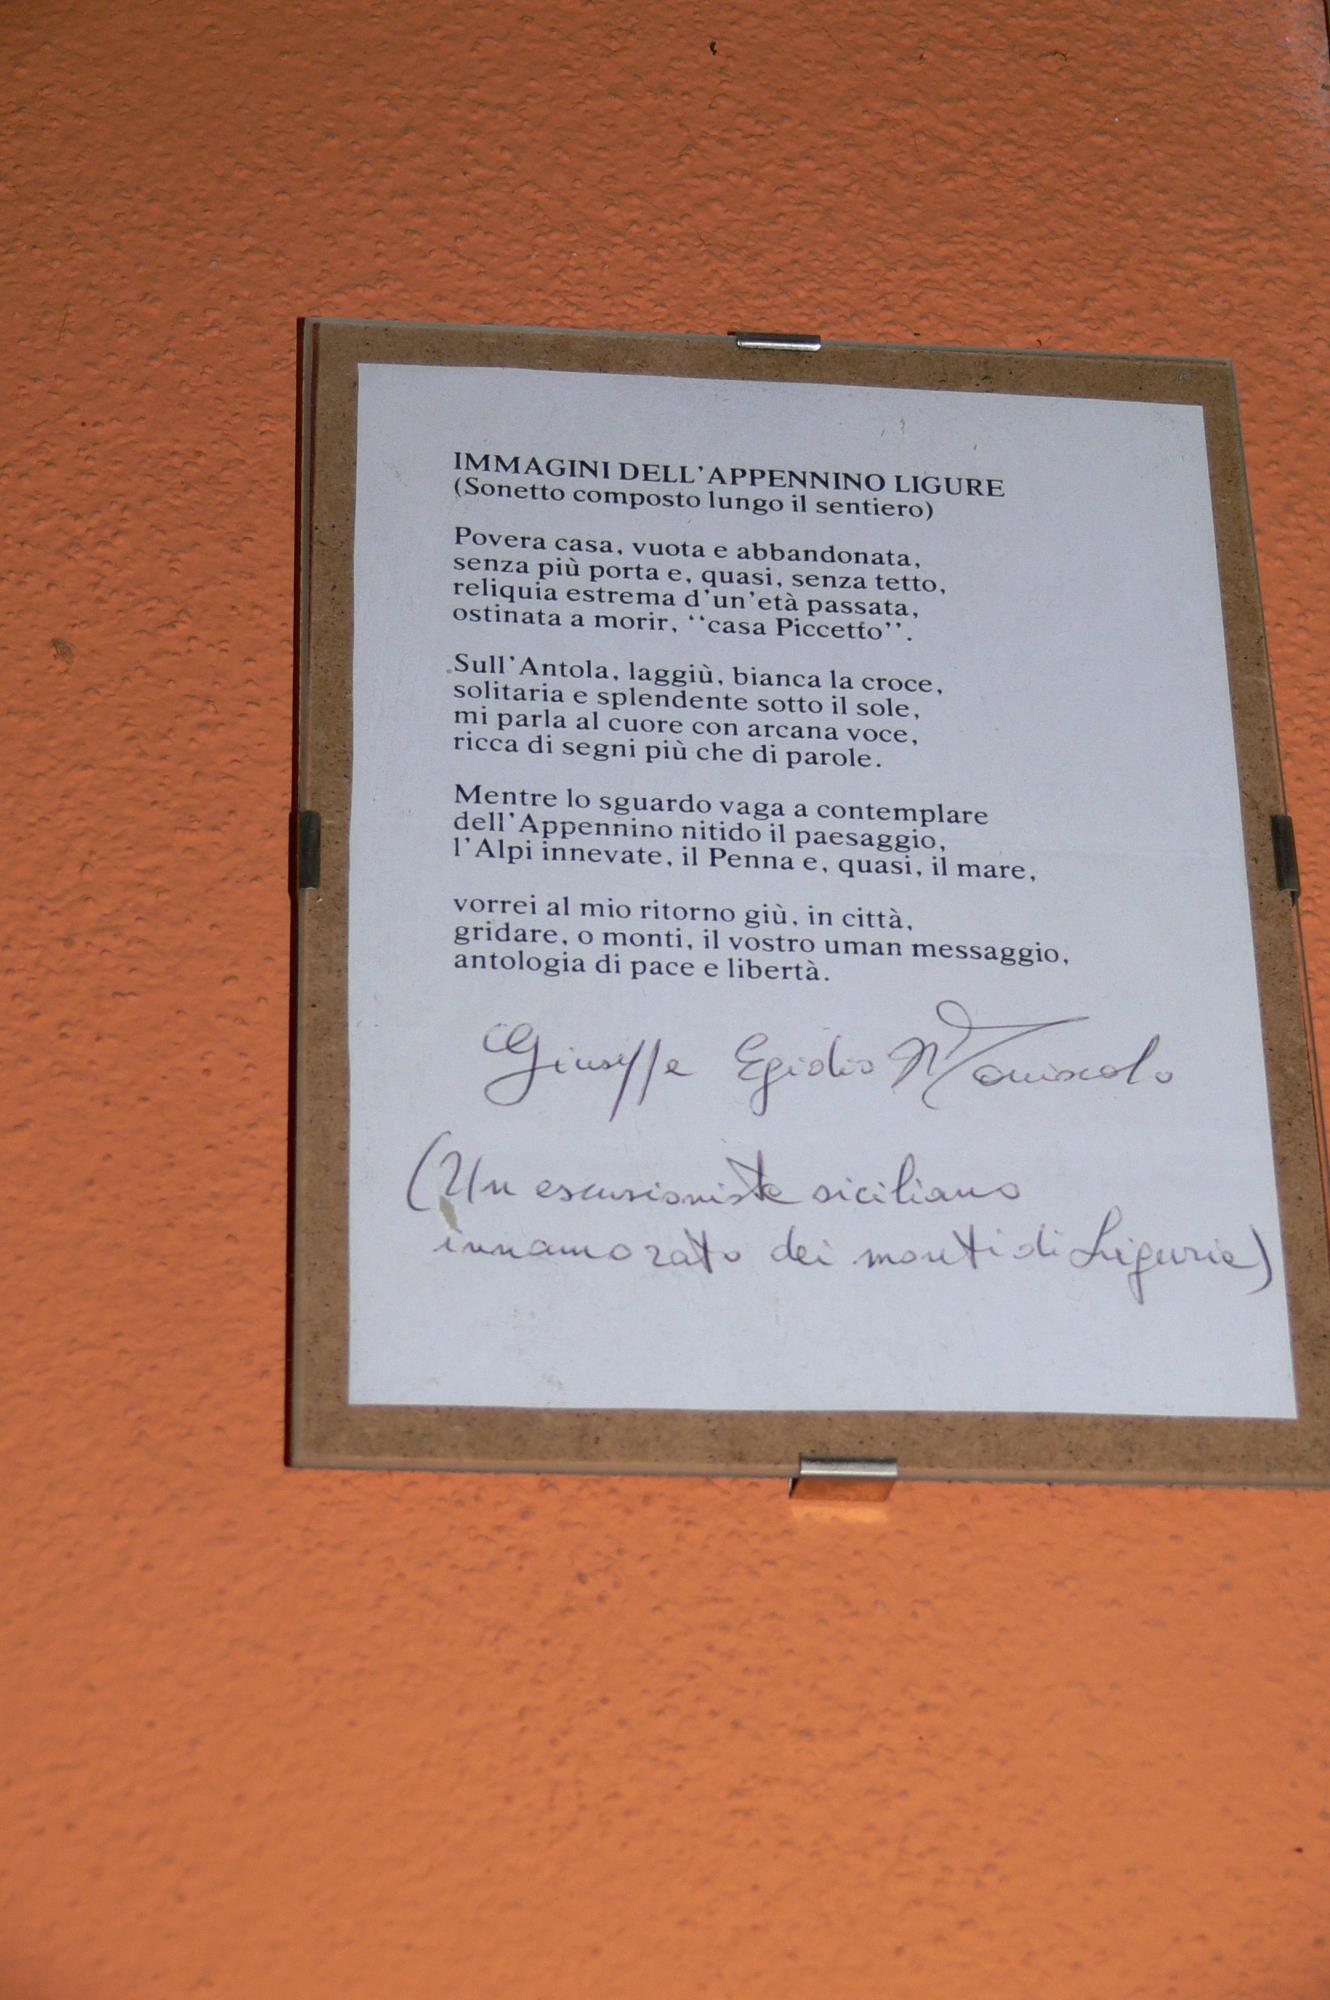 IMMAGINI DELL'APPENNINO LIGURE
(Sonetto composto lungo il sentiero)
Povera casa, vuota e abbandonata,
senza più porta e, quasi, senza tetto,
reliquia estrema d'un'età passata,
ostinata a morir, “casa Piccetto”.
Sull'Antola, laggiù, bianca la croce,
solitaria e splendente sotto il sole,
mi parla al cuore con arcana voce,
ricca di segni più che di parole.
Mentre lo sguardo vaga a contemplare
dell'Appennino nitido il paesaggio,
l'Alpi innevate, il Penna e, quasi, il mare,
vorrei al mio ritorno giù, in città,
gridare, o monti, il vostro uman messaggio,
antologia di pace e libertà.
Giuseppe Egidio
(Un escursionista siciliano
innamorato dei monti di Liguria)